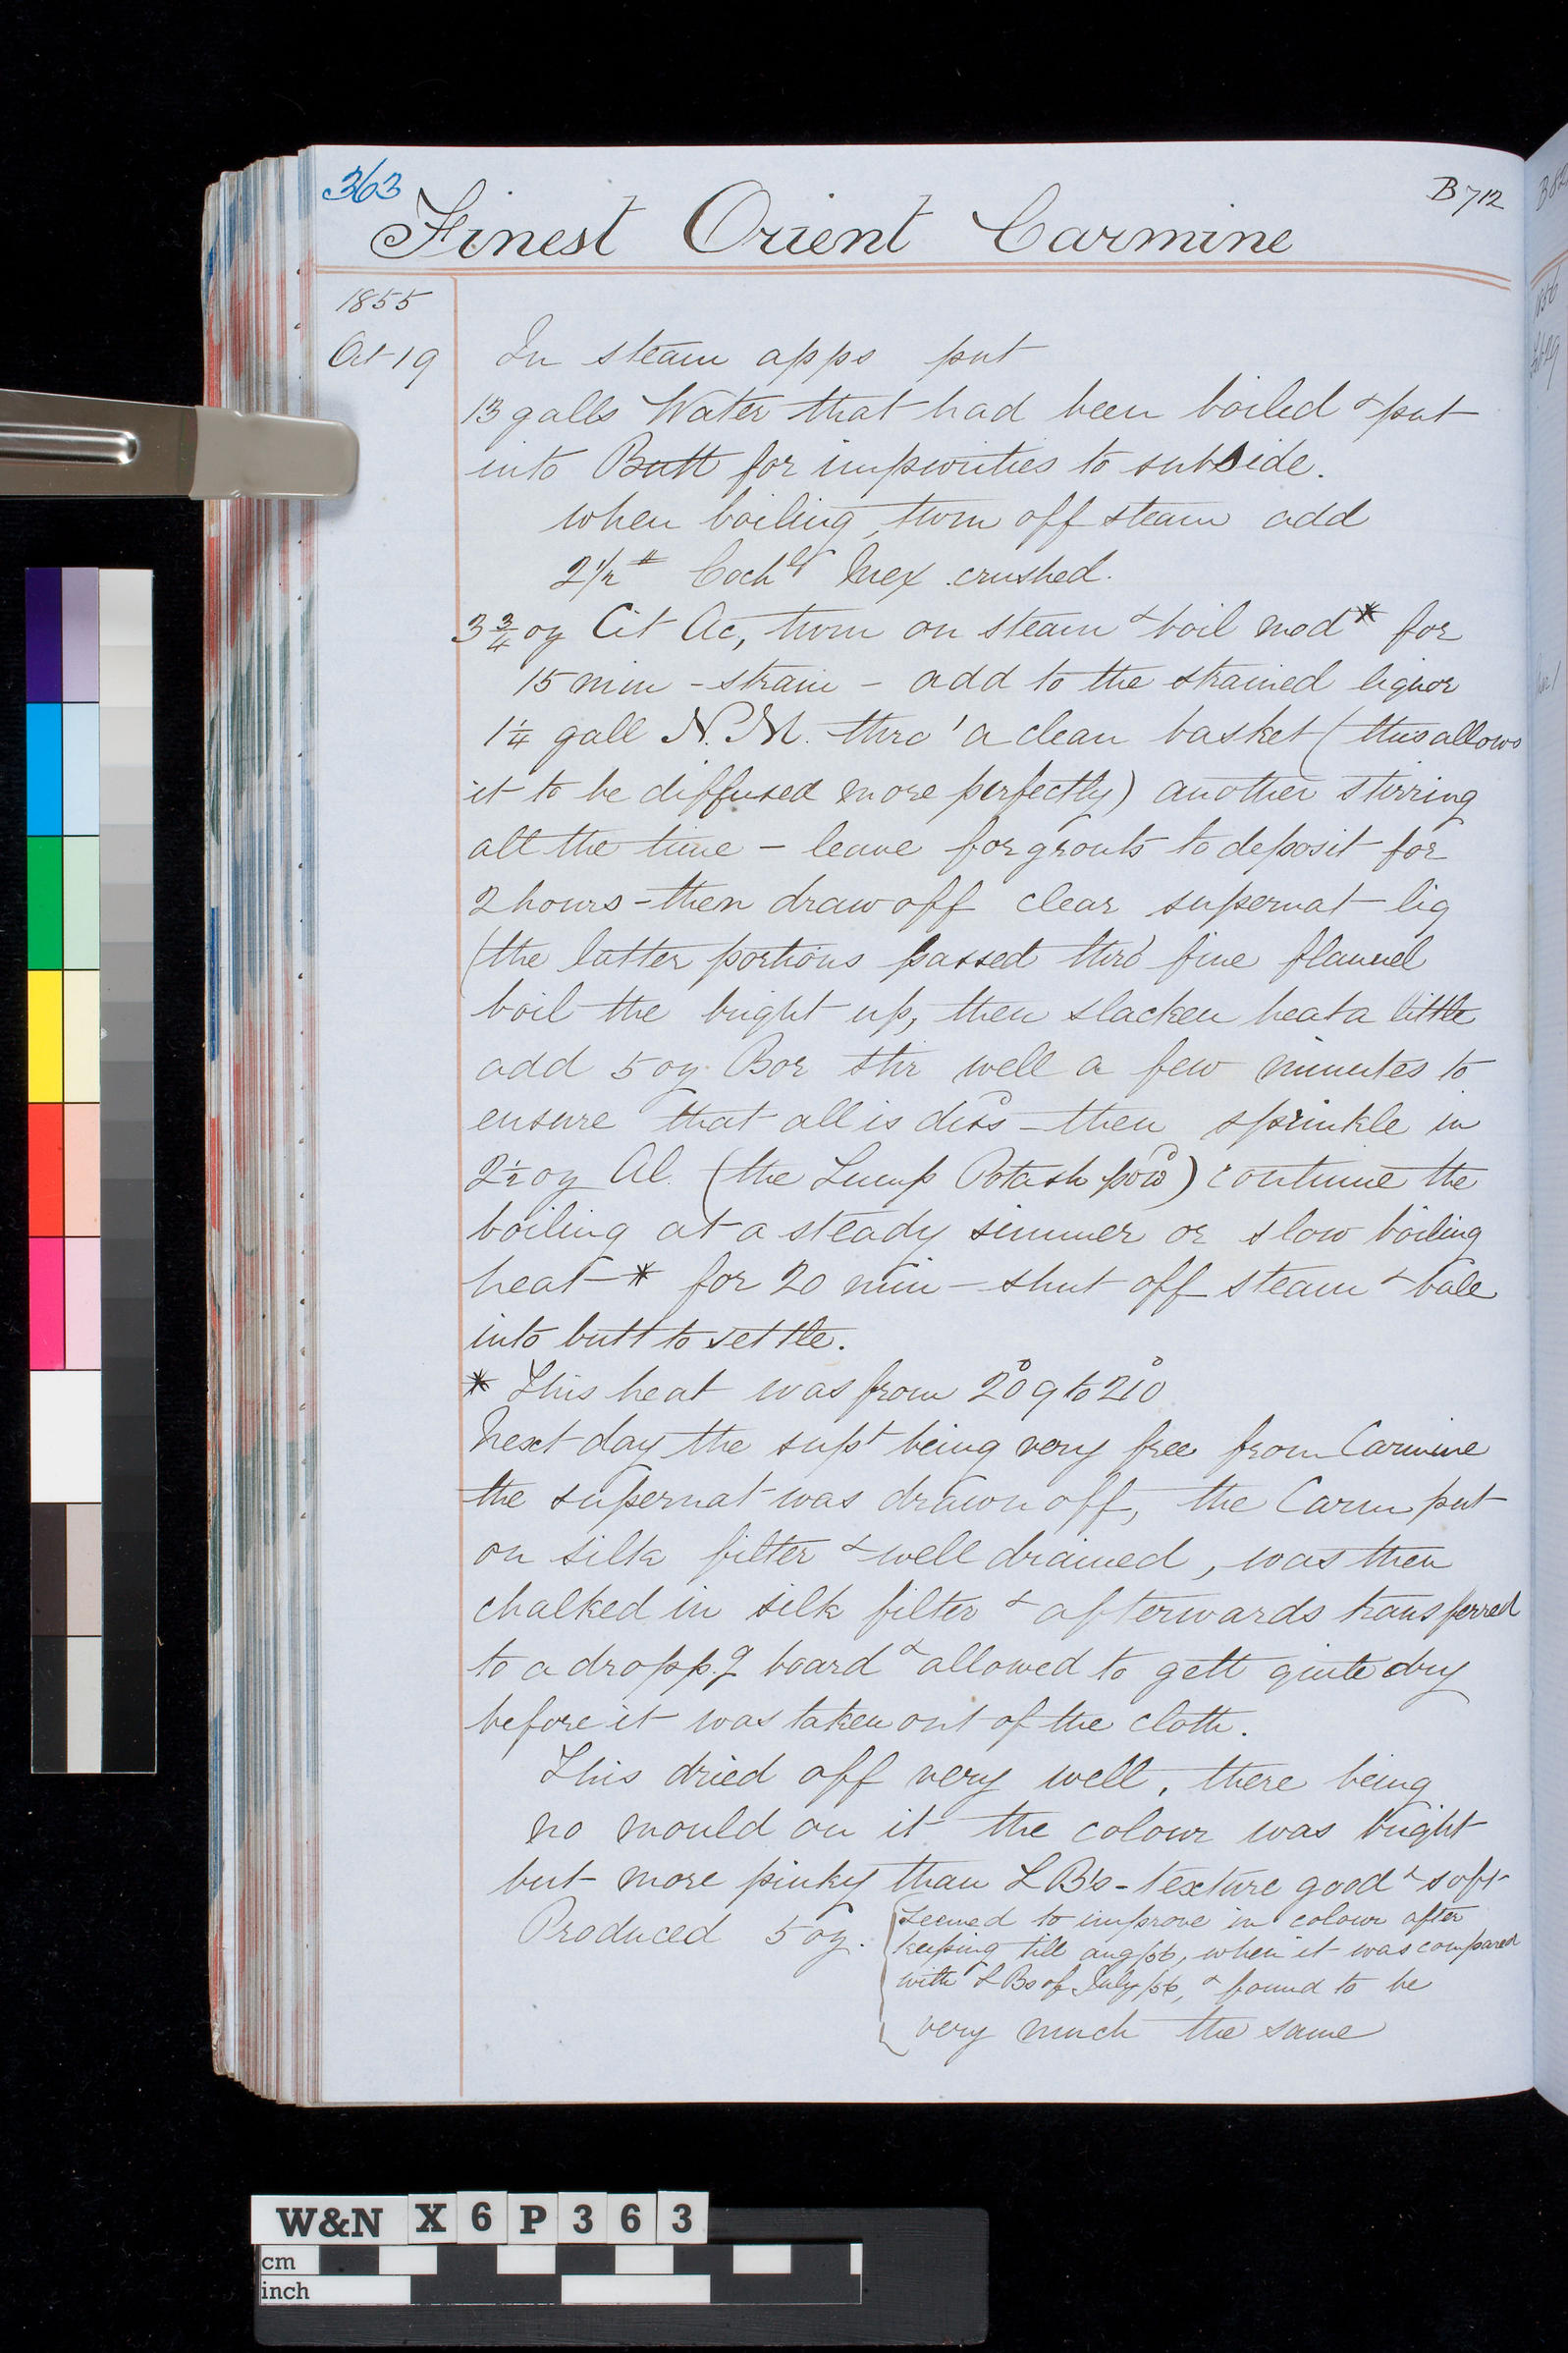 363
B712
Finest Orient Carmine
1855
Oct 19
In steam apps put
13 galls Water that had been boiled & put
into Butt for impurities to subside.
when boiling, turn off steam add
2 1/2 # Coch Mex crushed.
3 3/4 oz Cit Ac, turn on steam & boil mod* for
15 min - strain - add to the strained liquor
1 1/4 gall N.M. thro' a clean basket (this allows
it to be diffused more perfectly) another stirring
all the time - leave for grouts to deposit for
2 hours - then draw off clear supernat liq
(the latter portions passed thro' fine flannel
boil the bright up, then slacken heat a little
add 5 oz Bor stir well a few minutes to
ensure that all is diss - then sprinkle in
2 1/2 oz Al. (the Lump Potash powd) continue the
boiling at a steady simmer or slow boiling
heat * for 20 min - shut off steam & bale
into butt to settle.
* This heat was from 209° to 210°
Next day the supt being very free from Carmine
the supernat was drawn off, the Carm put
on silk filter & well drained, was then
chalked in silk filter & afterwards transferred
to a dropp.g board & allowed to gett quite dry
before it was taken out of the cloth.
This dried off very well, there being
no mould on it the colour was bright
but more pinky than LB's - texture good & soft
Produced 5 oz.
Seemed to improve in colour after
keeping till aug/56, when it was compared
with LBs of July/56, & found to be
very much the same
W&N X6P363
cm
inch